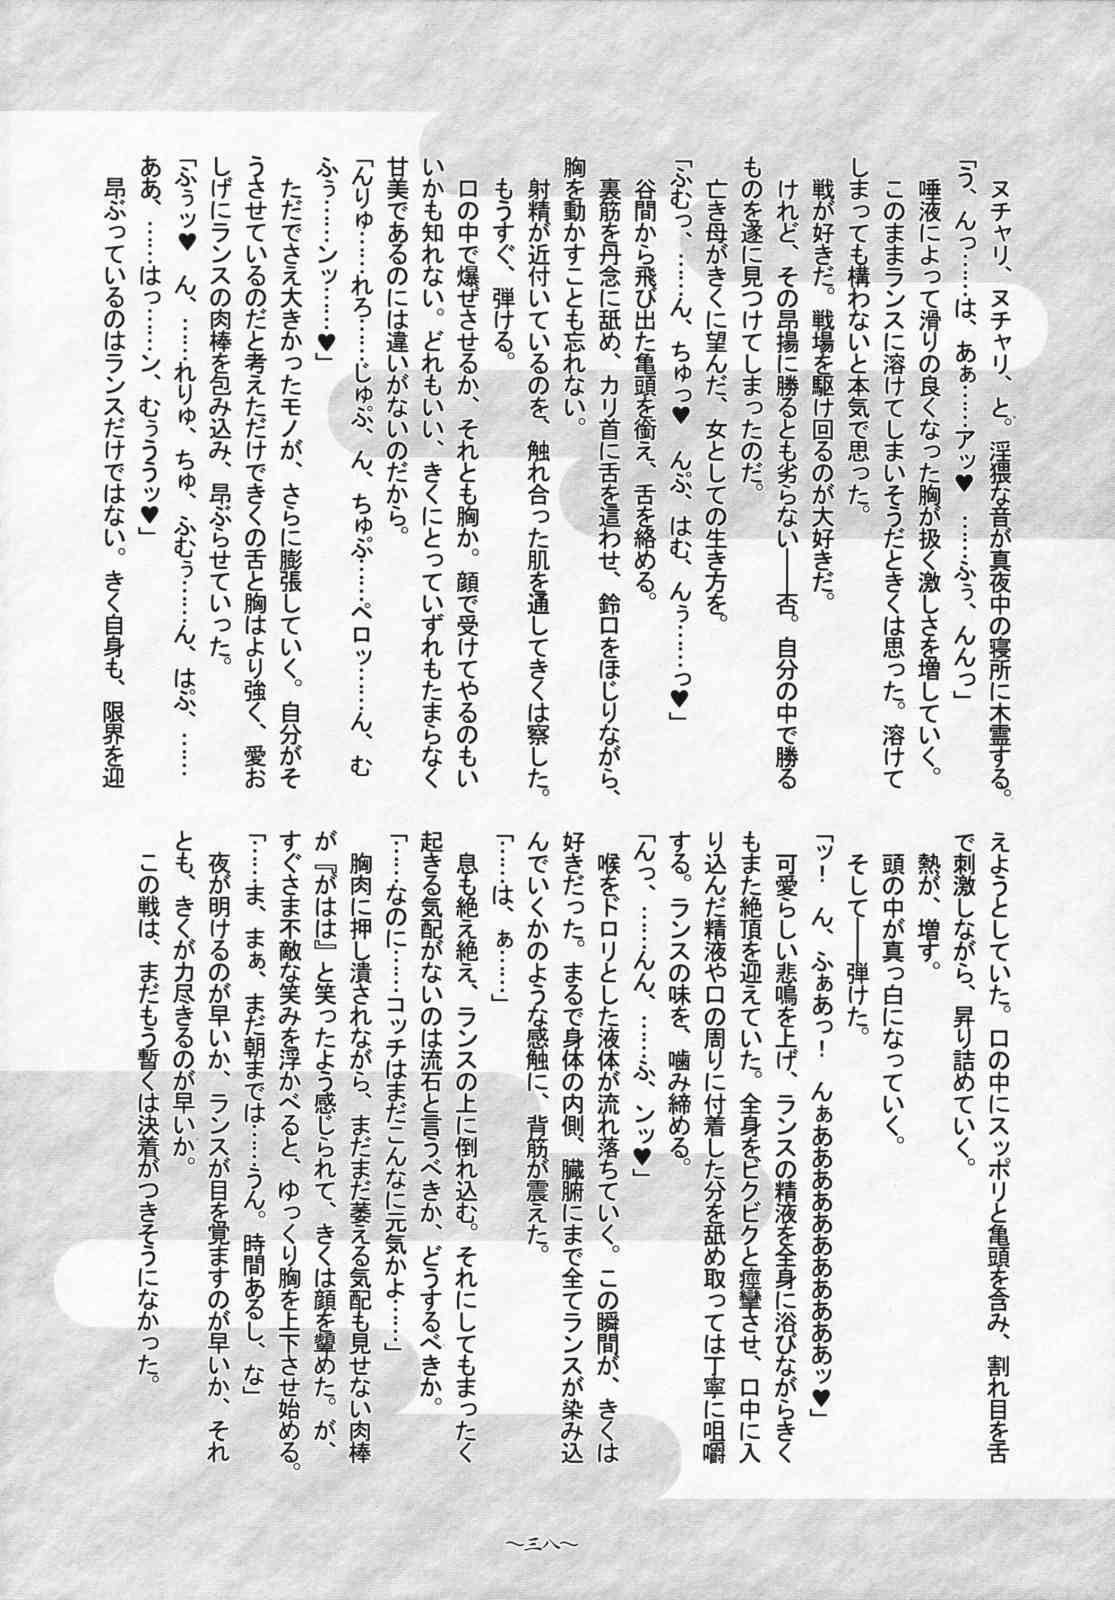 ヌチャリ、ヌチャリ、と。淫猥な音が真夜中の寝所に木霊する。
「う、んっ……は、あぁ……アッ♥　……ふぅ、んんっ」
唾液によって滑りの良くなった胸が扱く激しさを増していく。
このままランスに溶けてしまいそうだときくは思った。溶けて
しまっても構わないと本気で思った。
戦が好きだ。戦場を駆け回るのが大好きだ。
けれど、その昂揚に勝るとも劣らない――否。自分の中で勝る
ものを遂に見つけてしまったのだ。
亡き母がきくに望んだ、女としての生き方を。
「ふむっ、……ん、ちゅっ♥　んぷ、はむ、んぅ……っ♥」
谷間から飛び出た亀頭を銜え、舌を絡める。
裏筋を丹念に舐め、カリ首に舌を這わせ、鈴口をほじりながら、
胸を動かすことも忘れない。
射精が近付いているのを、触れ合った肌を通してきくは察した。
もうすぐ、弾ける。
口の中で爆ぜさせるか、それとも胸か。顔で受けてやるのもい
いかも知れない。どれもいい、きくにとっていずれもたまらなく
甘美であるのには違いがないのだから。
「んりゅ……れろ……じゅぷ、ん、ちゅぷ……ペロッ……ん、む
ふぅ……ンッ……♥」
ただでさえ大きかったモノが、さらに膨張していく。自分がそ
うさせているのだと考えただけできくの舌と胸はより強く、愛お
しげにランスの肉棒を包み込み、昂ぶらせていった。
「ふぅッ♥　ん、……れりゅ、ちゅ、ふむぅ……ん、はぷ、……
ああ、……はっ……ン、むぅううッ♥」
昂ぶっているのはランスだけではない。きく自身も、限界を迎
えようとしていた。口の中にスッポリと亀頭を含み、割れ目を舌
で刺激しながら、昇り詰めていく。
熱が、増す。
頭の中が真っ白になっていく。
そして――弾けた。
「ッ！　ん、ふぁあっ！　んぁああああああああああああッ♥」
可愛らしい悲鳴を上げ、ランスの精液を全身に浴びながらきく
もまた絶頂を迎えていた。全身をビクビクと痙攣させ、口中に入
り込んだ精液や口の周りに付着した分を舐め取っては丁寧に咀嚼
する。ランスの味を、噛み締める。
「んっ、……んん、……ふ、ンッ♥」
喉をドロリとした液体が流れ落ちていく。この瞬間が、きくは
好きだった。まるで身体の内側、臓腑にまで全てランスが染み込
んでいくかのような感触に、背筋が震えた。
「……は、ぁ……」
息も絶え絶え、ランスの上に倒れ込む。それにしてもまったく
起きる気配がないのは流石と言うべきか、どうするべきか。
「……なのに……コッチはまだこんなに元気かよ……」
胸肉に押し潰されながら、まだまだ萎える気配も見せない肉棒
が『がはは』と笑ったよう感じられて、きくは顔を顰めた。が、
すぐさま不敵な笑みを浮かべると、ゆっくり胸を上下させ始める。
「……ま、まぁ、まだ朝までは……うん。時間あるし、な」
夜が明けるのが早いか、ランスが目を覚ますのが早いか、それ
とも、きくが力尽きるのが早いか。
この戦は、まだもう暫くは決着がつきそうになかった。
～三八～